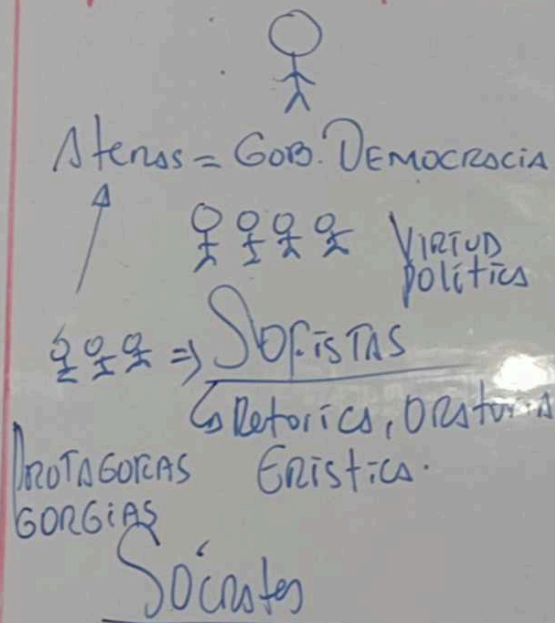 Atenas = GOB. DEMOCRACIA
VIRTUD
política
=> SOFISTAS
↳ Retorica, Oratoria
PROTAGORAS Eristica.
GORGIAS
Sócrates